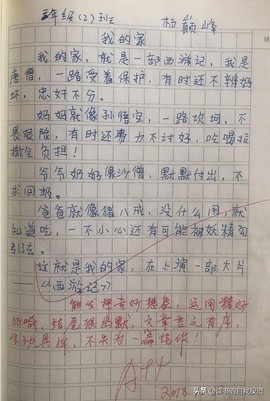 三年级(2)班 杨巅峰
我的家
我的家,就是一部西游记,我是
唐僧,一路受着保护,有时还不辨好
坏,忠奸不分。
妈妈就像孙悟空,一路坎坷,不
畏艰险,有时还费力不讨好,吃喝拉
撒全负担!
爷爷奶奶像沙僧,默默付出,不
求回报。
爸爸就像猪八戒,没什么用,就
知道吃,一不小心还有可能被妖精勾
引了去。
这就是我的家,在上演一部大片
——《西游记》
能发挥奇妙想象,运用
比喻,结尾很幽默,文章言之有序,
生动具体,不失为一篇佳作!
2018
头条@读书的自救投资